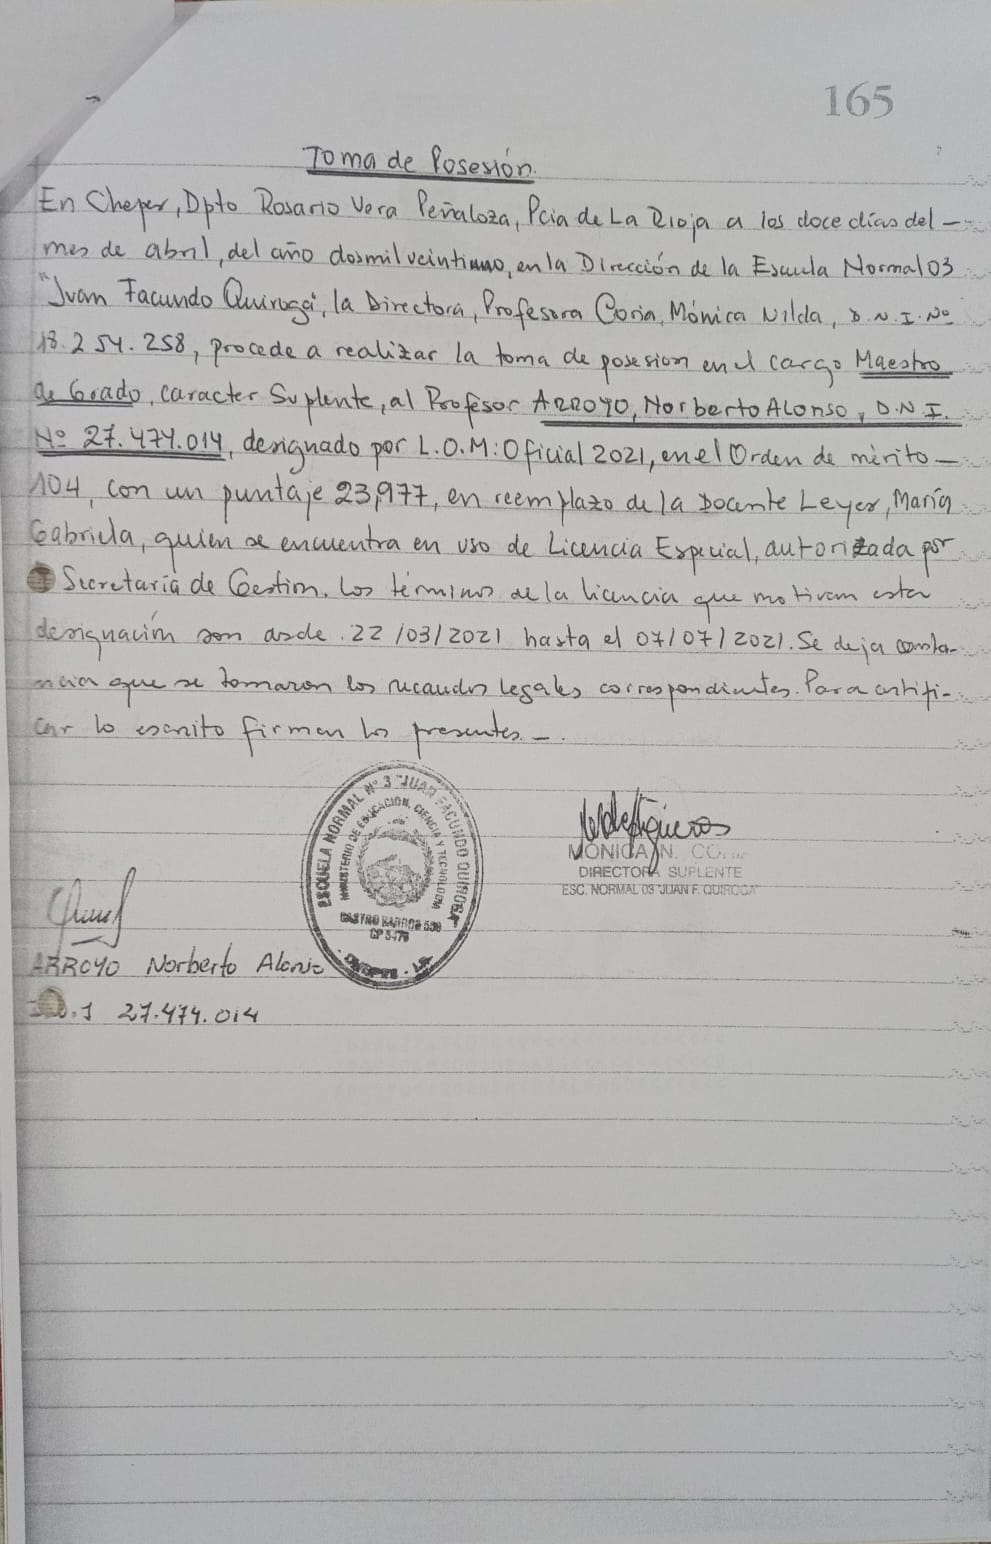 165
Toma de Posesión.
En Chepes, Dpto Rosario Vera Peñaloza, Pcia de La Rioja a los doce días del -
mes de abril, del año dosmil veintiuno, en la Dirección de la Escuela Normal 03
"Juan Facundo Quiroga", la Directora, Profesora Coria, Mónica Nilda, D.N.I. Nº
18.254.258, procede a realizar la toma de posesion en el cargo Maestro
de Grado, caracter Suplente, al Profesor ARROYO, Norberto Alonso, D.N.I.
Nº 27.474.014, designado por L.O.M: Oficial 2021, en el Orden de mérito -
104, con un puntaje 23,977, en reemplazo de la Docente Leyes, María
Gabriela, quien se encuentra en uso de Licencia Especial, autorizada por
Secretaría de Gestion. Los términos de la licencia que motivan esta
designación son desde 22/03/2021 hasta el 07/07/2021. Se deja consta-
ncia que se tomaron los recaudos legales correspondientes. Para certifi-
car lo escrito firman los presentes. -.
ESCUELA NORMAL Nº 3 "JUAN FACUNDO QUIROGA"
MINISTERIO DE EDUCACIÓN, CIENCIA Y TECNOLOGIA
CASTRO BARROS 530
CP 5470
CHEPES - LR
MÓNICA N. CO
DIRECTORA SUPLENTE
ESC. NORMAL 03 "JUAN F. QUIROGA"
ARROYO Norberto Alonso
.I 27.474.014